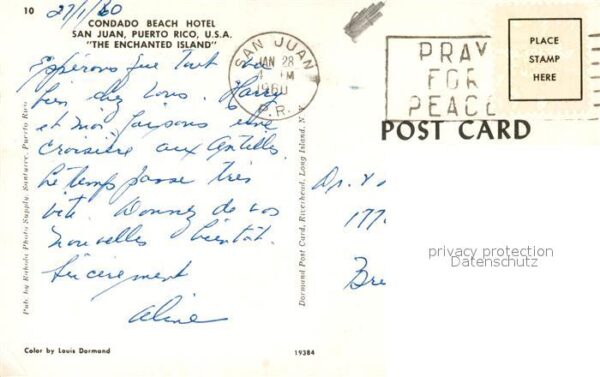 27/1/60
10
CONDADO BEACH HOTEL
SAN JUAN, PUERTO RICO, U.S.A.
"THE ENCHANTED ISLAND"
Espérons que tout va
bien chez vous. Harry
et moi faisons une
croisière aux Antilles.
Le temps passe très
vite. Donnez de vos
nouvelles bientôt.
Sincèrement
Aline
Color by Louis Dormand
Pub. by Rahola Photo Supply, Santurce, Puerto Rico
Dormand Post Card, Riverhead, Long Island, N.Y.
19384
SAN JUAN
JAN 28
1960
P.R.
PRAY
FOR
PEACE
PLACE
STAMP
HERE
POST CARD
Dr. &
177
Bre
privacy protection
Datenschutz